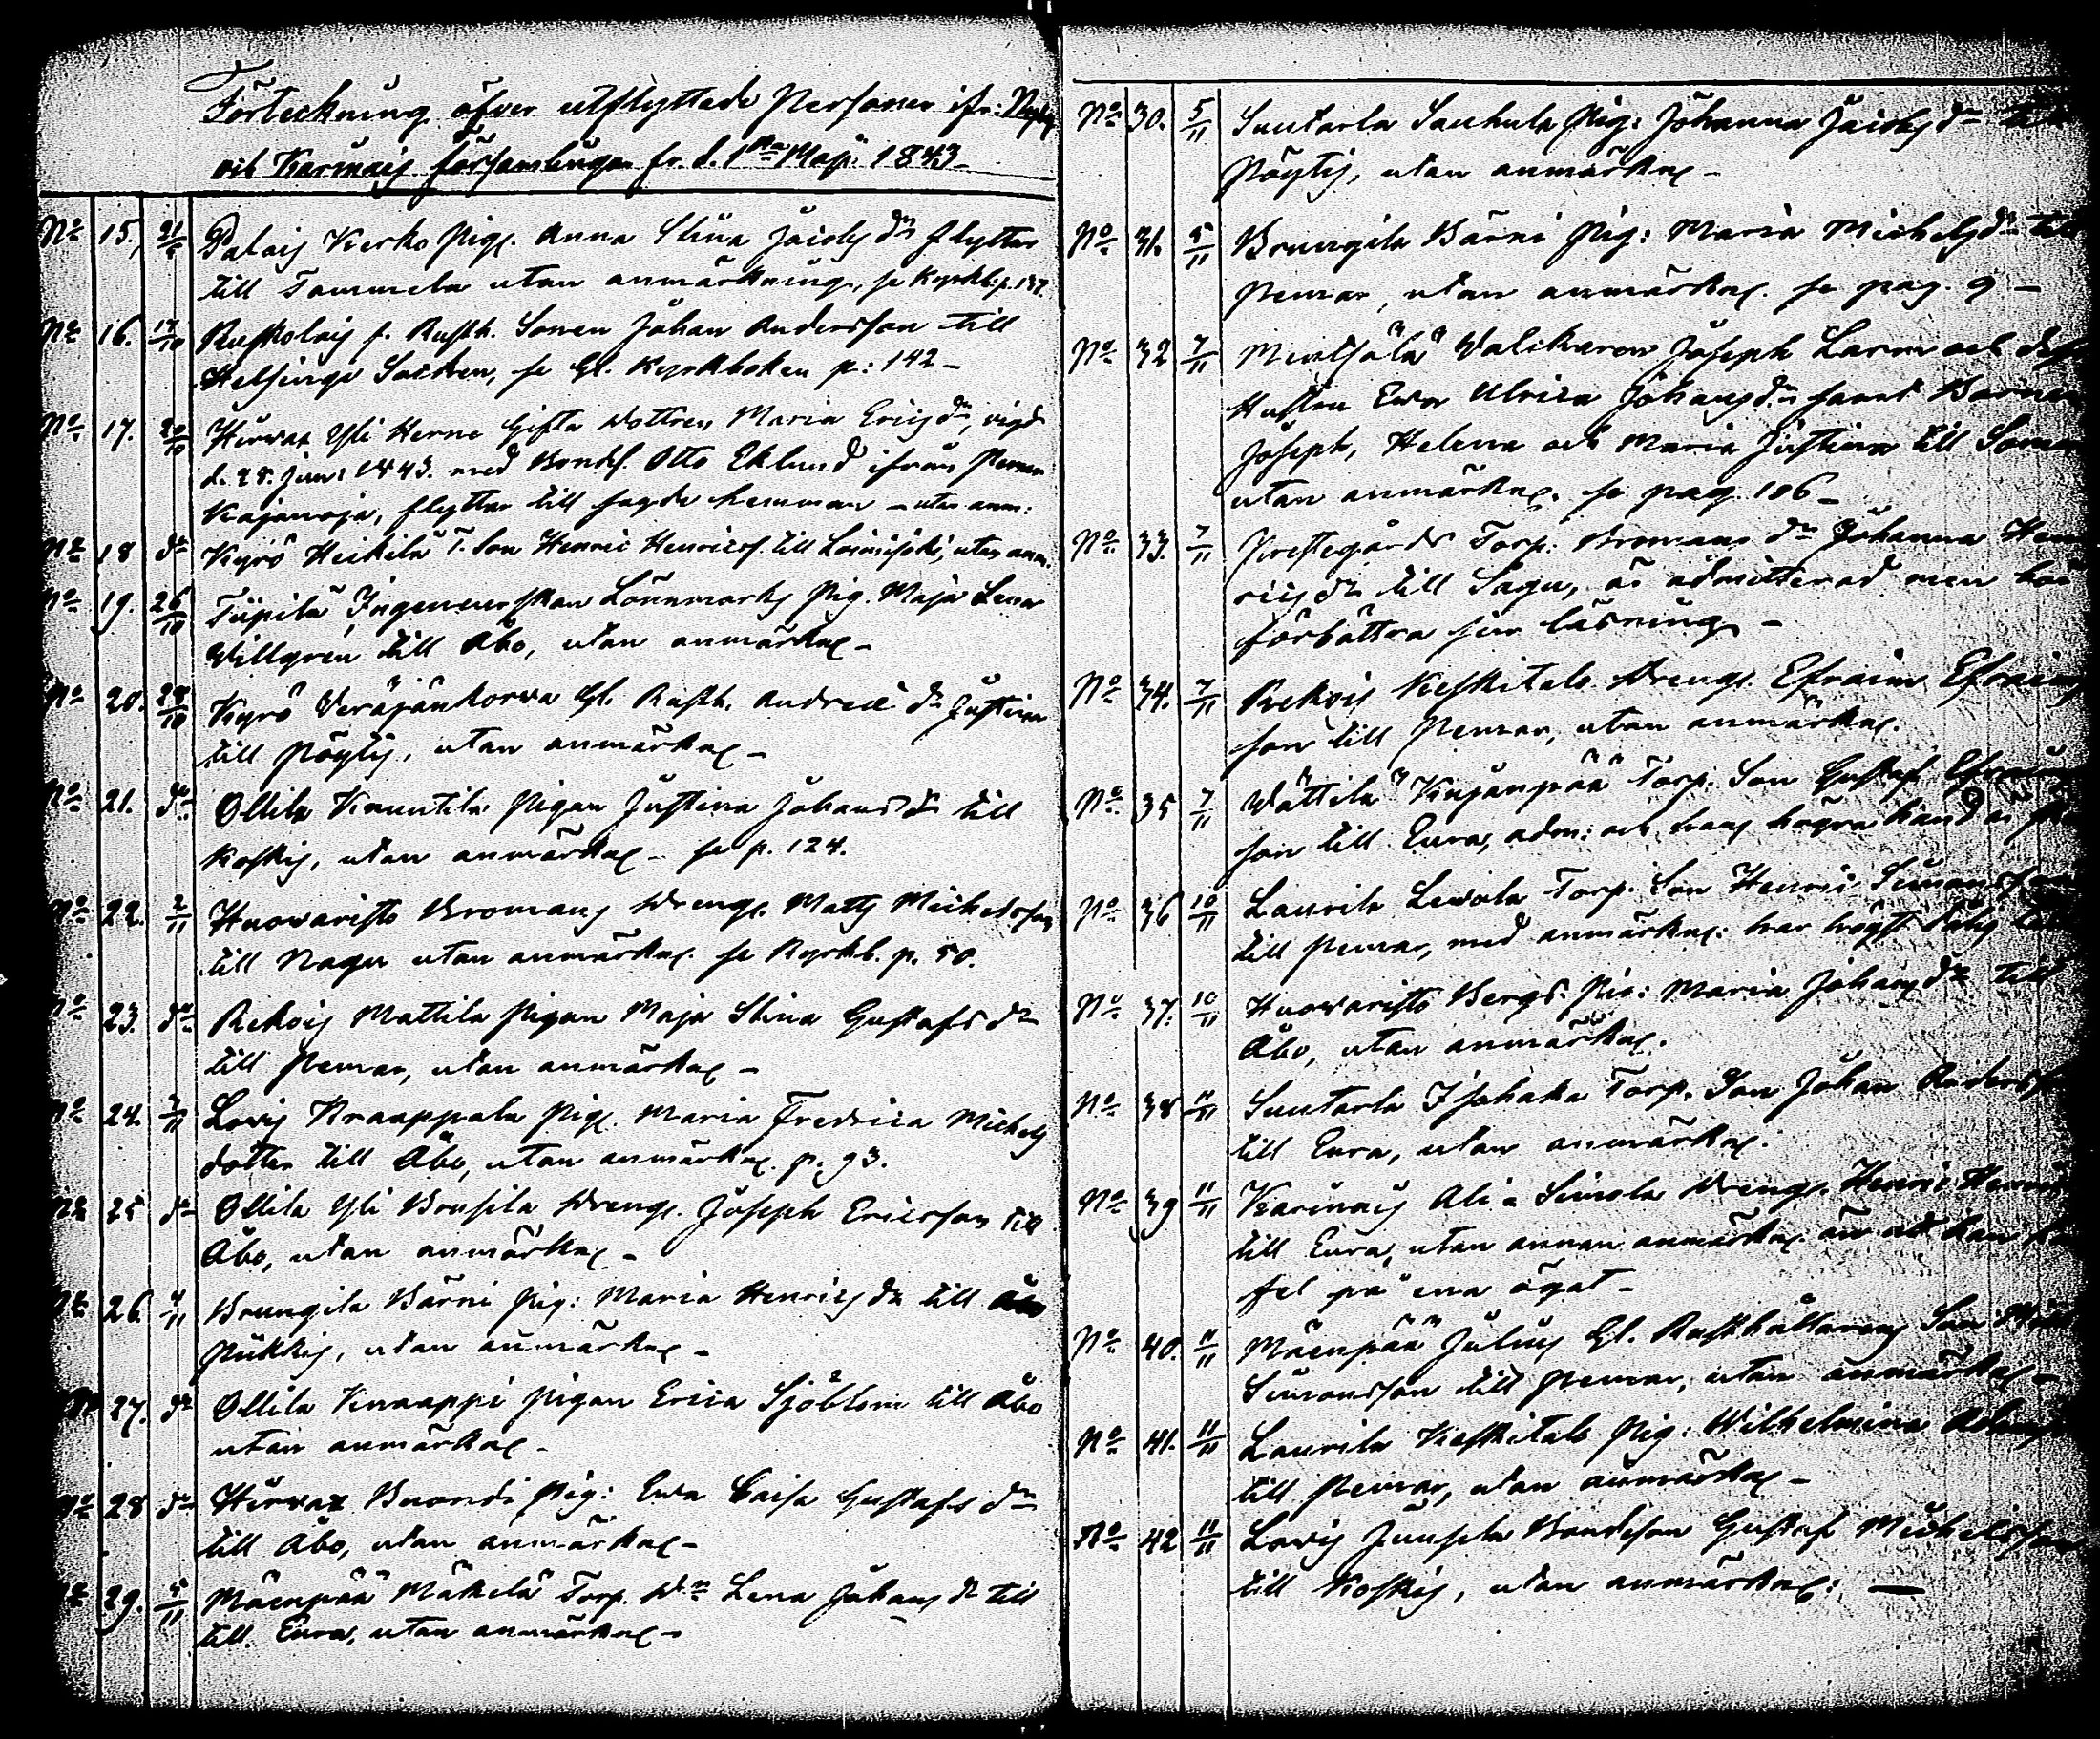 Förteckning öfver utflyttade Personer ifr:
och Karinais församlingar fr. d. 1sta Maji 1843
No 15. 21/ Palais Kerko Pig. Anna Stina Jacobs dr flyttar
till Tammela utan anmärkning, se Kyrkb. p. 137.
No 16. 17/10 Ruskolais f. Rusth. Sonen Johan Andersson till
Helsinge Socken, se Gl. Kyrkboken p: 142 -
No 17. 20/10 Hirvas Yli Herne Gifta Dottren Maria Erics dr, vigd
d. 28. Juni 1843. med Bondes. Otto Eklund ifrån Pemar
Kajanoja, flyttar till sagde hemman - utan anm:
No 18 do Kyrö Heikilä T. Son Henric Henricss. till Loimijoki, utan anm.
No 19. 26/10 Tiipilä Ingeneurskan Lönnmarks Pig. Maja Lena
Willgrén till Åbo, utan anmärkng -
No 20. 28/10 Kyrö Veräjänkorva Gl. Rusth. Andreæ dr Justina
till Pöytis, utan anmärkng -
No 21. do Ollila Knuutila Pigan Justina Johans dr till
Koskis, utan anmärkng - se p. 124.
No 22. 2/11 Huovaristo Bromans Dreng. Matts Michelsson
till Nagu utan anmärkng. se Kyrkb. p. 50.
No 23. do Rekois Mattila Pigan Maja Stina Gustafs dr
till Pemar, utan anmärkng -
No 24. /11 Lovis Knaappala Pig. Maria Fredrica Michels
dotter till Åbo, utan anmärkng. p. 93.
No 25 do Ollila Yli Brusila Dreng. Joseph Ericsson till
Åbo, utan anmärkng -
No 26. 4/11 Braungila Bärni Pig: Maria Henrics dr till
Piikkis, utan anmärkng -
No 27. do Ollila Knaappi Pigan Erica Sjöblom till Åbo
utan anmärkng -
No 28 do Hirvas Buondi Pig: Eva Caisa Gustafs dr
till Åbo, utan anmärkng -
No 29. 5/11 Mäenpää Mäkelä Torp. Dr Lena Johans dr till
till Eura, utan anmärkng -
No 30. 5/11 Suutarla Sauhula Pig: Johanna Jacobs dr till
Pöytis, utan anmärkng -
No 31. 5/11 Braungila Bärni Pig: Maria Michels dr till
Pemar, utan anmärkng. se pag. 9 -
No 32 7/11 Mentsälä Valckaren Joseph Larm och dess
Hustru Eva Ulrica Johans dr samt Barnen
Joseph, Helena och Maria Justina till
utan anmärkng. se pag. 106 -
No 33. 7/11 Prestegårds Torp: Bromans dr Johanna Hen
rics dr till Sagu, är admitterad men bör
förbättra sin läsning -
No 34. 7/11 Rekois Keskitalo Dreng. Efraim Efraims
son till Pemar, utan anmärkng.
No 35 7/11 Wättilä Kujanpää Torp. Son Gustaf
son till Eura, adm: och hans högra hand är
No 36 10/11 Laurila Levola Torp. Son Henric Simonsson
till Pemar, med anmärkng: har högst dålig
No 37. 10/11 Huovaristo Bergs. Pig: Maria Johans dr till
Åbo, utan anmärkng.
No 38 11/11 Suutarla Isahaka Torp. Son Johan Anderss
till Eura, utan anmärkng.
No 39 11/11 Karinais Ali-Simola Dreng. Henric
till Eura, utan annan anmärkng än att han har
fel på ena ögat -
No 40. 11/11 Mäenpää Julius Gl. Rusthållarens Son
Simonsson till Pemar, utan anmärkng -
No 41. 11/11 Laurila Keskitalo Pig: Wilhelmina
till Pemar, utan anmärkng -
No 42 11/11 Lovis Juusela Bondeson Gustaf Michelsson
till Koskis, utan anmärkng: —